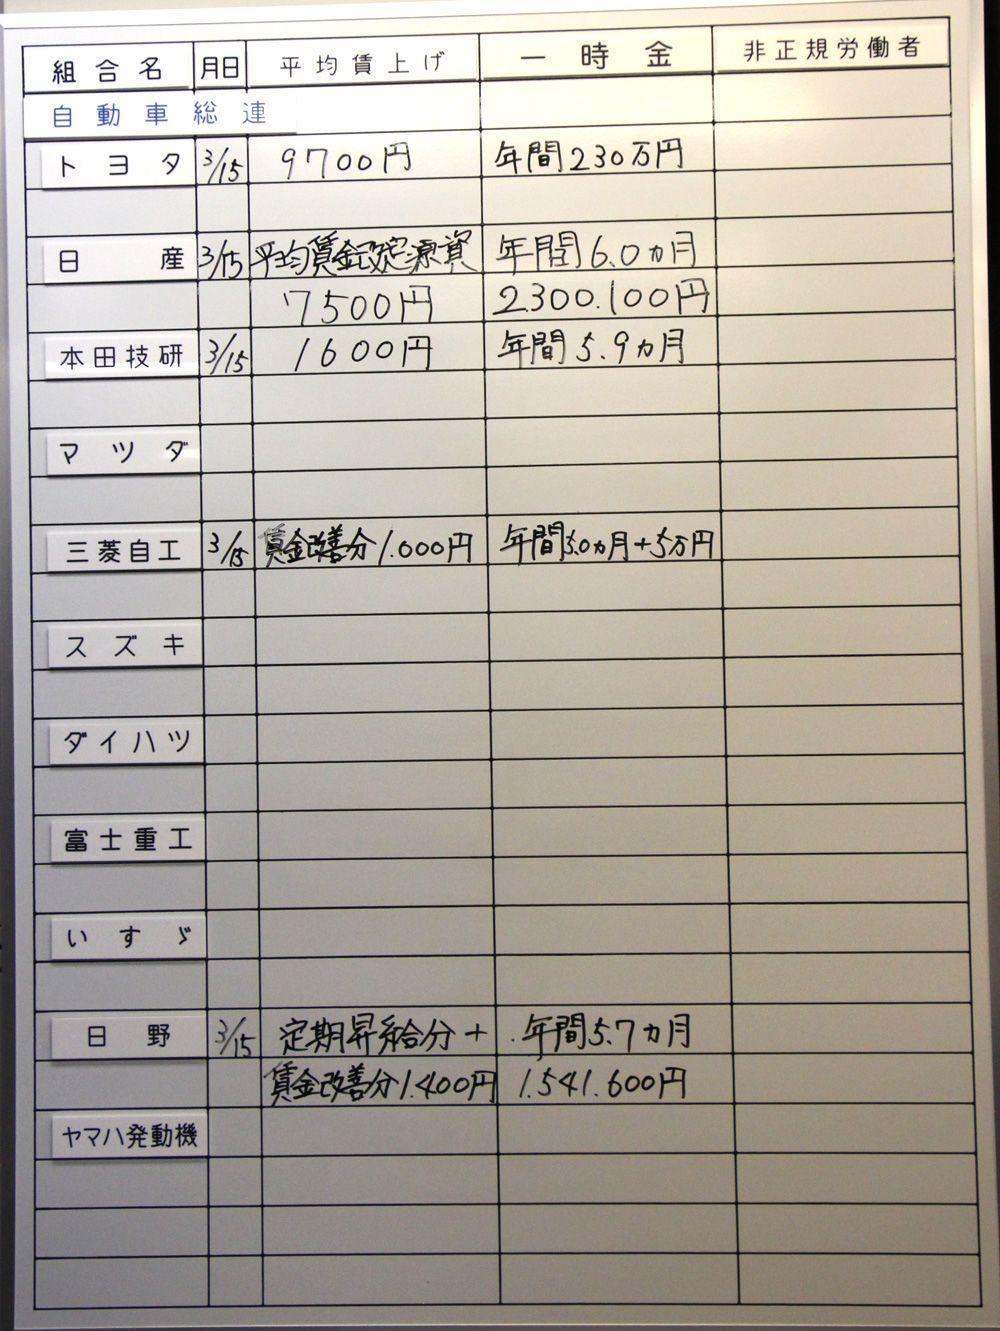 組合名 月日 平均賃上げ 一時金 非正規労働者
自動車総連
トヨタ 3/15 9700円 年間230万円
日産 3/15 平均賃金改定源資 年間6.0ヵ月
7500円 2.300.100円
本田技研 3/15 1600円 年間5.9ヵ月
マツダ
三菱自工 3/15 賃金改善分1.000円 年間5.0ヵ月+5万円
スズキ
ダイハツ
富士重工
いすゞ
日野 3/15 定期昇給分+ 年間5.7ヵ月
賃金改善分1.400円 1.541.600円
ヤマハ発動機